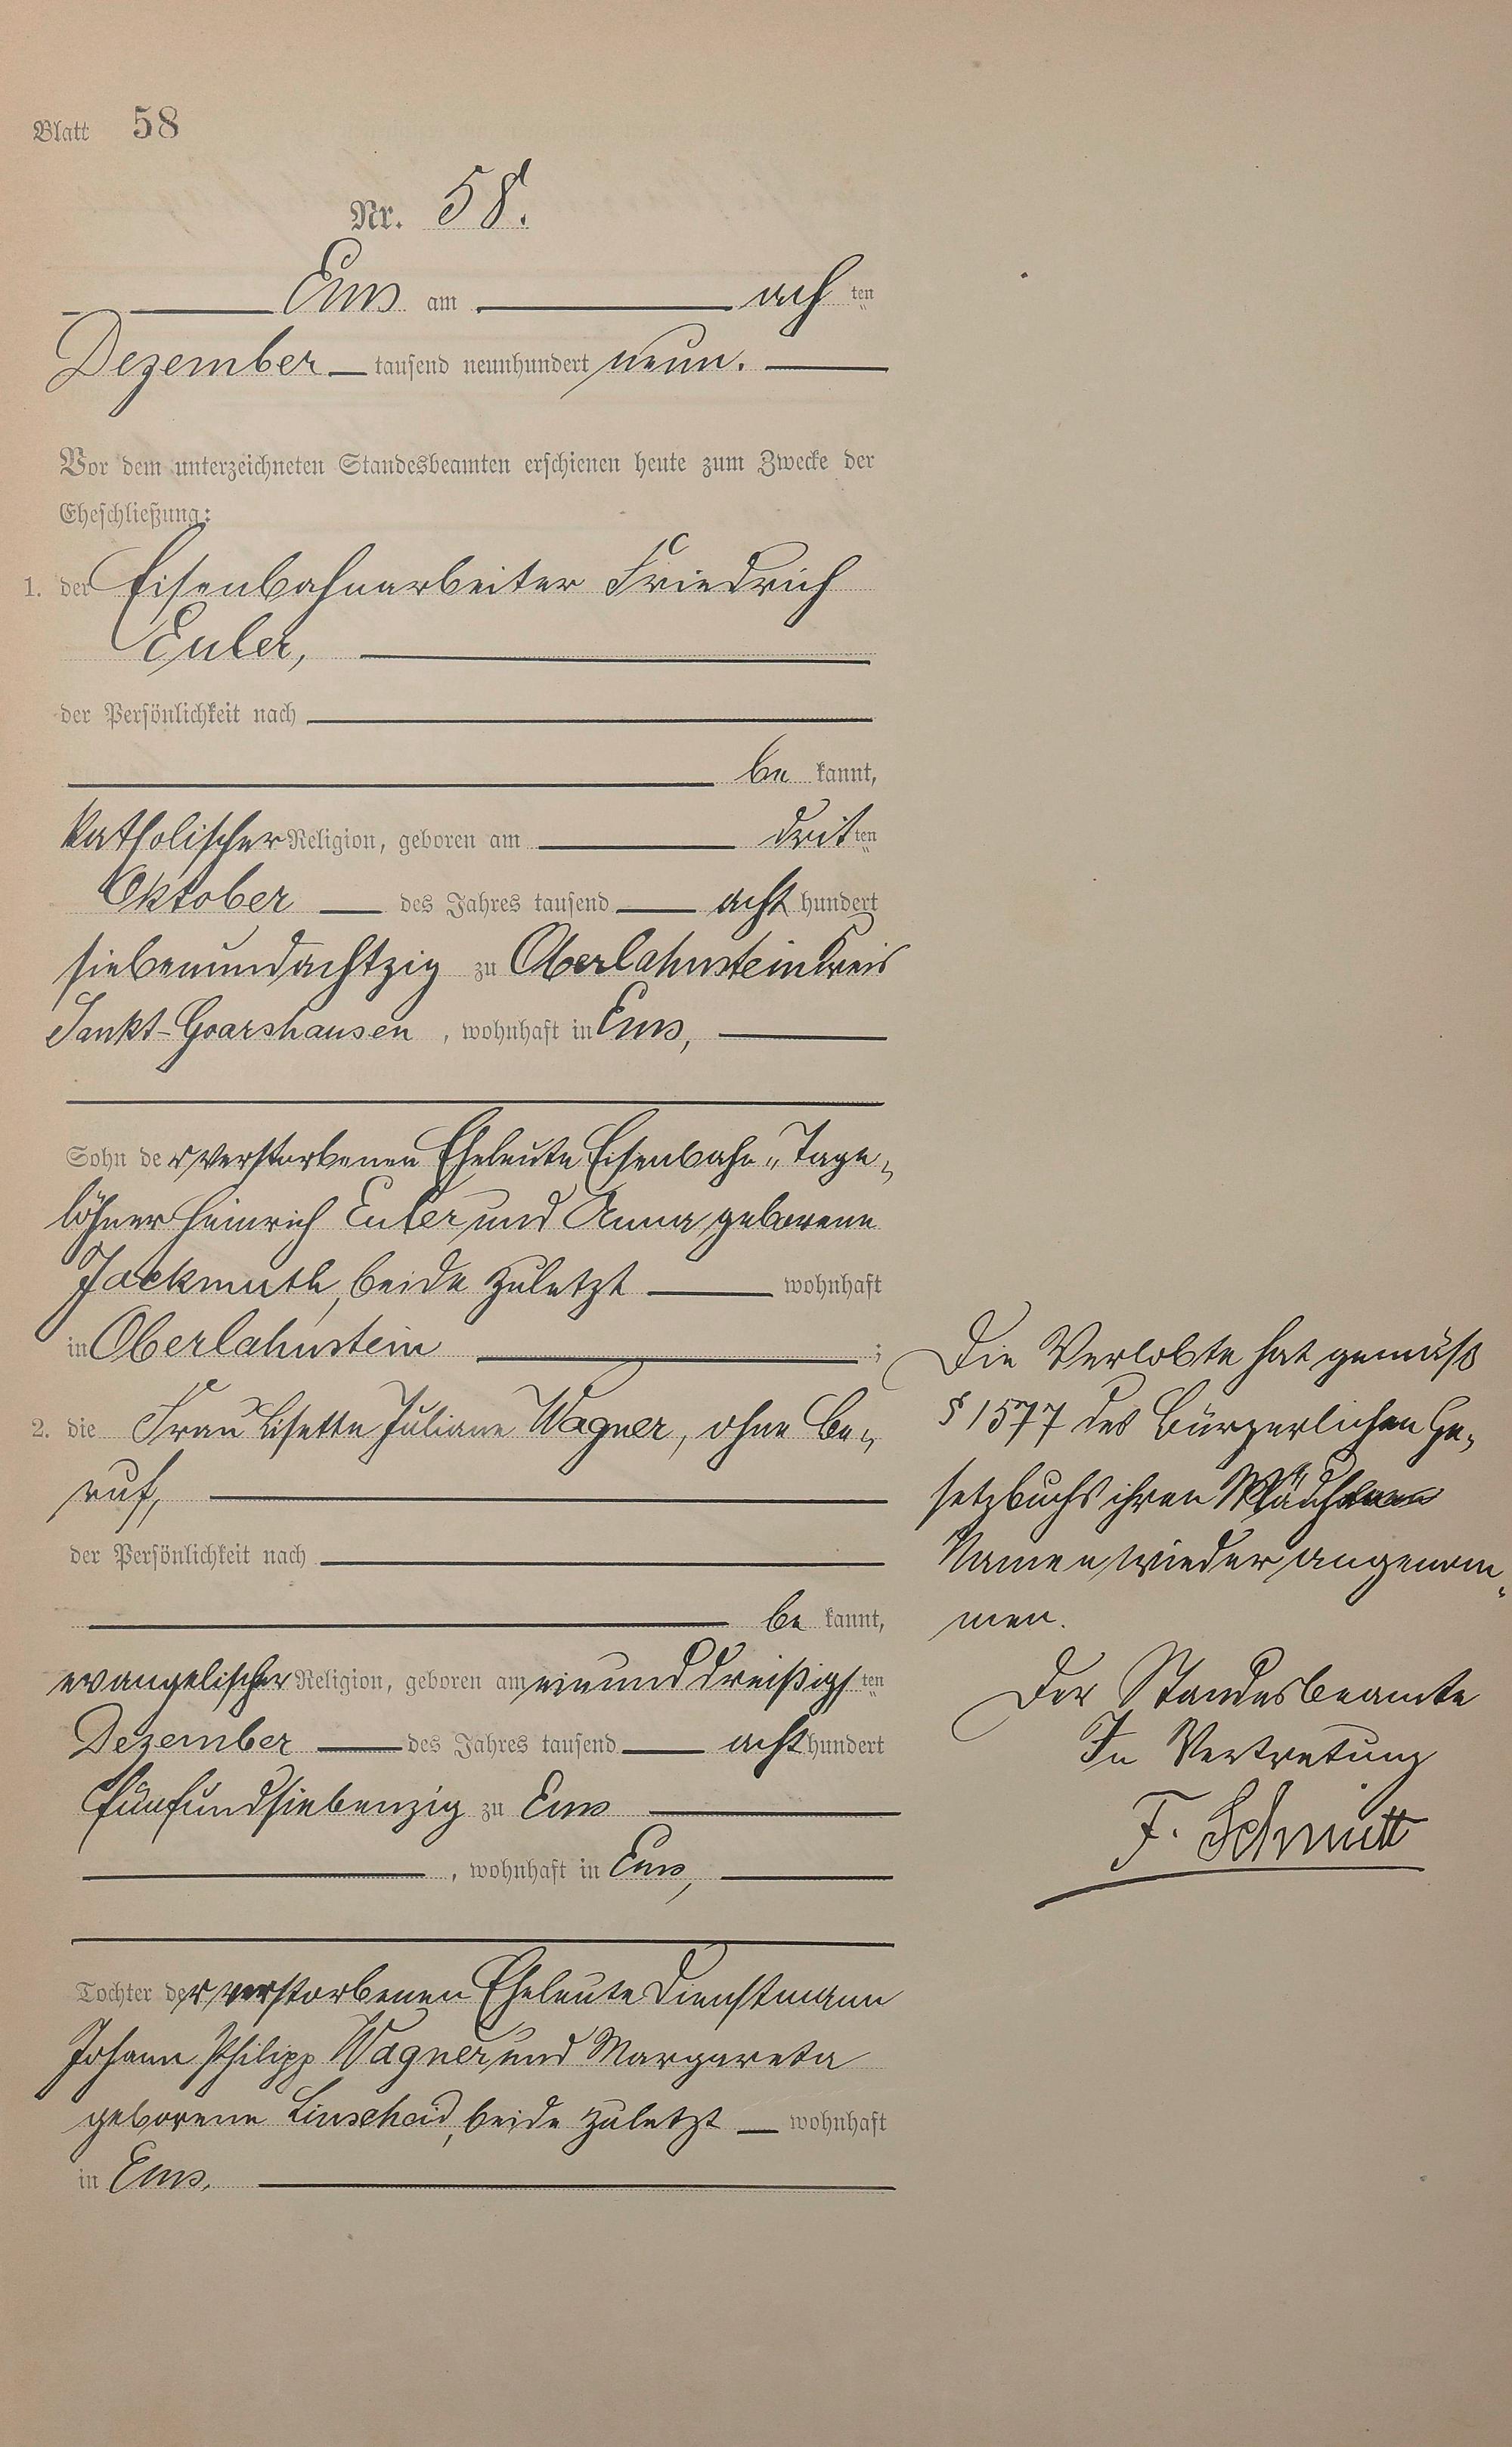 Blatt 58
Nr. 58.
Ems am acht ten
Dezember tausend neunhundert neun.
Vor dem unterzeichneten Standesbeamten erschienen heute zum Zwecke der
Eheschließung:
1. der Eisenbahnarbeiter Friedrich
Euler,
der Persönlichkeit nach
be kannt,
katholischer Religion, geboren am drit ten
Oktober des Jahres tausend acht hundert
siebenundachtzig zu Oberlahnstein Kreis
Sankt-Goarshausen, wohnhaft in Ems,
Sohn der verstorbenen Eheleute Eisenbahn-Tage-
löhner Heinrich Euler und Anna geborene
Jackmuth, beide zuletzt wohnhaft
in Oberlahnstein ;
2. die Frau Lisette Juliane Wagner, ohne Be-
ruf,
der Persönlichkeit nach
be kannt,
evangelischer Religion, geboren am einunddreißigs ten
Dezember des Jahres tausend acht hundert
fünfundsiebenzig zu Ems
, wohnhaft in Ems,
Tochter der verstorbenen Eheleute Dienstmann
Johann Philipp Wagner und Margareta
geborene Linscheid, beide zuletzt wohnhaft
in Ems.
Die Verlobte hat gemäß
§ 1577 des Bürgerlichen Ge-
setzbuchs ihren Mädchen
Namen wieder angenom-
men.
Der Standesbeamte
In Vertretung
F. Schmitt